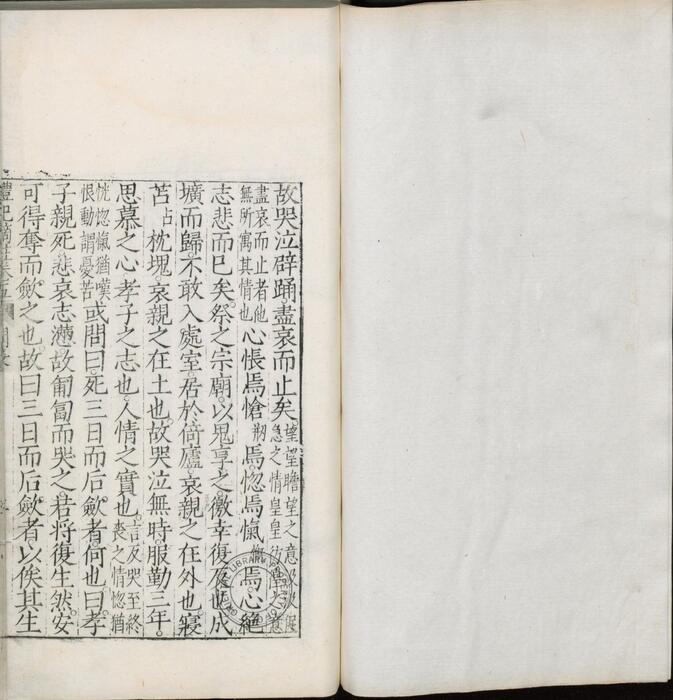 故哭泣辟踊盡哀而止矣望望瞻望之意
急之情皇皇
盡哀而止者他
無所寓其情也心悵焉愴焉惚焉愾焉心絶
志悲而已矣祭之宗廟以鬼享之徼幸復反也成
壙而歸不敢入處室居於倚廬哀親之在外也寢
苫占枕塊哀親之在土也故哭泣無時服勤三年
思慕之心孝子之志也人情之實也言反哭至終
喪之情惚猶
恍惚愾猶嘆
恨動謂憂苦或問曰死三日而后斂者何也曰孝
子親死悲哀志懣故匍匐而哭之若將復生然安
可得奪而斂之也故曰三日而后斂者以俟其生
禮記
LIBRARY